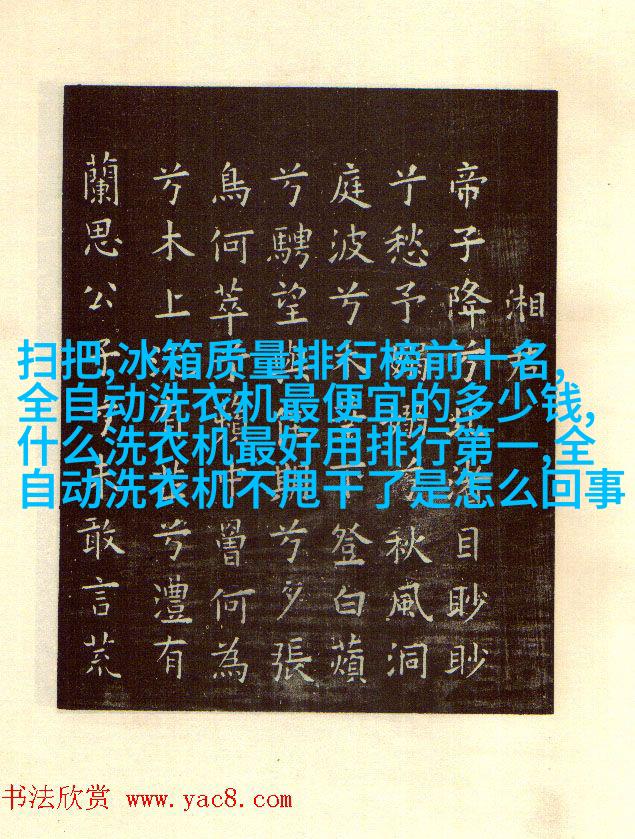 扫把,冰箱质量排行榜前十名,
全自动洗衣机最便宜的多少钱,
什么洗衣机最好用排行第一,全
自动洗衣机不甩干了是怎么回事
湘
帝子降兮目眇眇
兮愁予嫋嫋兮秋風洞
庭波兮下登白蘋
兮騁望兮夕張
鳥何萃中罾何為
兮木上芷兮澧有
蘭思公子未敢言荒
书法欣赏 www.yac8.com